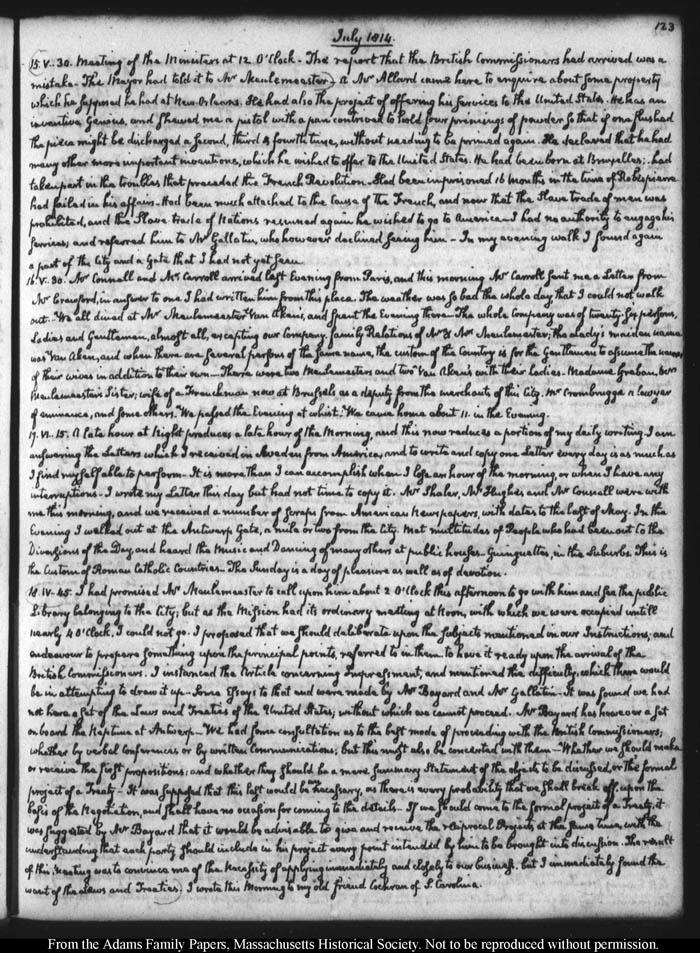 123
July 1814.
15. V..30. Meeting of the Ministers at 12 O'Clock. The report that the British Commissioners had arrived was a
mistake. The Mayor had told it to Mr Meulemeester. A Mr Allard came here to enquire about some property
which he supposed he had at New-Orleans. He had also the project of offering his services to the United States. He has an
inventive Genius, and shewed me a pistol with a pan contrived to hold four primings of powder so that if one flashed
the piece might be discharged a second, third & fourth time, without needing to be primed again. He declared that he had
many other more important inventions, which he wished to offer to the United States. He had been born at Bruxelles; had
taken part in the troubles that preceded the French Revolution. Had been imprisoned 16 months in the time of Robespierre
had failed in his affairs. Had been much attached to the Cause of the French, and now that the Slave trade of men was
prohibited, and the Slave trade of Nations resumed again he wished to go to America. I had no authority to engage his
services, and referred him to Mr Gallatin, who however declined seeing him. In my evening walk I found again
a part of the City and a Gate that I had not yet seen.
16. V..30. Mr Connall and Mr Carroll arrived last Evening from Paris, and this morning Mr Carroll sent me a Letter from
Mr Crawford, in answer to one I had written him from this place. The weather was so bad the whole day, that I could not walk
out. We all dined at Mr Meulemeester Van Aken's, and spent the Evening there. The whole Company was of twenty-six persons,
Ladies and Gentlemen, almost all, excepting our Company, family Relations of Mr & Mrs Meulemeester; the lady's maiden name
was Van Aken, and when there are several persons of the same name, the custom of the Country is for the Gentlemen to assume the names
of their wives in addition to their own. There were two Meulemeesters and two Van Aken's with their Ladies. Madame Greban, born
Meulemeester's Sister; wife of a Frenchman now at Brussels as a deputy from the merchants of this City. Mr Crombrugge a lawyer
of eminence, and some others. We passed the Evening at whist. We came home about 11. in the Evening.
17. VI..15. A late hour at Night produces a late hour of the Morning, and this now reduces a portion of my daily writing. I am
answering the Letters which I received in Sweden from America, and to write and copy one Letter every day is as much as
I find myself able to perform. It is more than I can accomplish when I lose an hour of the morning, or when I have any
interruptions. I wrote my Letter this day but had not time to copy it. Mr Shaler, Mr Hughes and Mr Connall were with
me this morning, and we received a number of scraps from American Newspapers, with dates to the last of May. In the
Evening I walked out at the Antwerp Gate, a mile or two from the City. Met multitudes of People who had been out to the
Diversions of the Day, and heard the Music and Dancing of many others at public houses. Guinguettes, in the Suburbs. This is
the Custom of Roman Catholic Countries. The Sunday is a day of pleasure as well as of devotion.
18. IV..45. I had promised Mr Meulemeester to call upon him about 2 O'Clock this afternoon to go with him and see the public
Library belonging to the City; but as the Mission had its ordinary meeting at Noon, with which we were occupied untill
nearly 4 O'Clock, I could not go. I proposed that we should deliberate upon the subjects mentioned in our Instructions, and
endeavour to prepare something upon the principal points, referred to in them to have it ready upon the arrival of the
British Commissioners. I instanced the Article concerning Impressment, and mentioned the difficulty, which there would
be in attempting to draw it up. Some Essays to that end were made by Mr Bayard and Mr Gallatin. It was found we had
not here a set of the Laws and Treaties of the United States; without which we cannot proceed. Mr Bayard has however a set
on board the Neptune at Antwerp. We had some consultation as to the best mode of proceeding with the British Commissioners;
whether by verbal Conferences or by written Communications; but this must also be concerted with them. Whether we should make
or receive the first propositions; and whether they should be a mere summary Statement of the objects to be discussed, or the formal
project of a Treaty. It was supposed that this last would be necessary, as there is every probability that we shall break off, upon the
basis of the Negotiation, and shall have no occasion for coming to the details. If we should come to the formal project of a Treaty, it
was suggested by Mr Bayard that it would be advisable to give and receive the reciprocal Projects at the same time, with the
understanding that each party should include in his project every point intended by him to be brought into discussion. The result
of this Meeting was to convince me of the Necessity of applying immediately and closely to our business. but I immediately found the
want of the Laws and Treaties. I wrote this Morning to my old friend Cochran of S. Carolina.
From the Adams Family Papers, Massachusetts Historical Society. Not to be reproduced without permission.